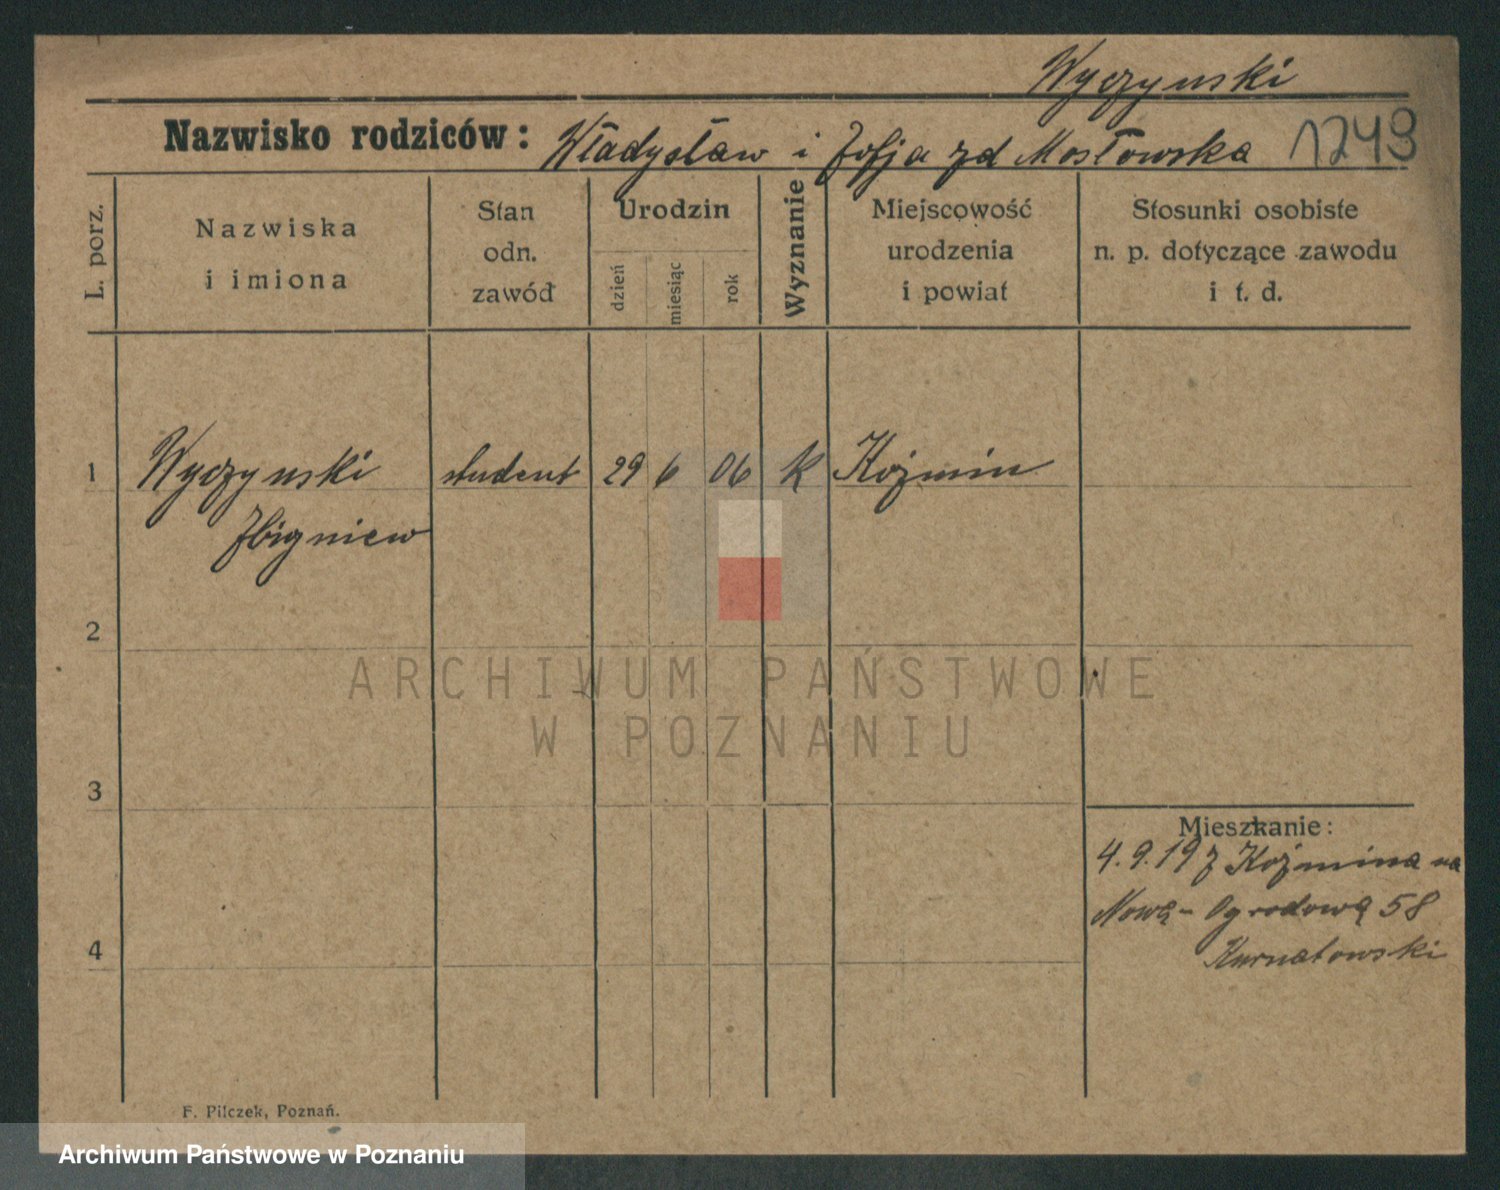 Wyczynski
Nazwisko rodziców: Władysław i Zofja zd Mosłowska 1249
L. porz.
Nazwiska
i imiona
Stan
odn.
zawód
Urodzin
dzień
miesiąc
rok
Wyznanie
Miejscowość
urodzenia
i powiat
Stosunki osobiste
n. p. dotyczące zawodu
i t. d.
1 Wyczynski student 29 6 06 k Koźmin
Zbigniew
2
ARCHIWUM PAŃSTWOWE
W POZNANIU
3
Mieszkanie:
4.9.19 z Koźmina na
Nową-Ogrodową 58
Kurnatowski
4
F. Pilczek, Poznań.
Archiwum Państwowe w Poznaniu